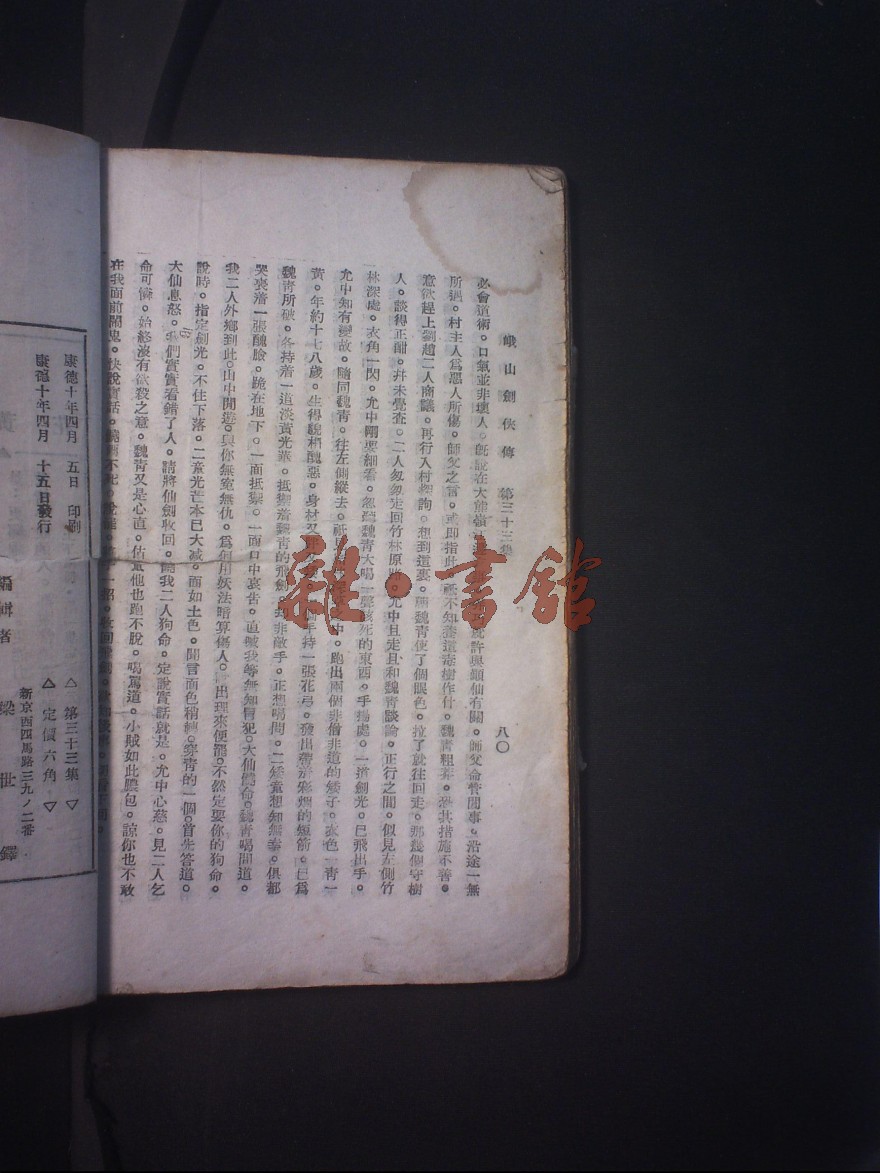 峨山劍俠傳 第三十三集
八〇
必會道術。口氣並非壞人。既說在大熊嶺 就許與顛仙有關。師父命管閒事。沿途一無
所遇。村主人爲惡人所傷。師父之言。或即指此。祇不知盜這毒樹作什。魏青粗莽。恐其措施不善。
意欲趕上劉趙二人商議。再行入村探詢。想到這裏。朝魏青使了個眼色。拉了就往回走。那幾個守樹
人。談得正酣。幷未覺查。二人匆匆走回竹林原路。尤中且走且和魏青談論。正行之間。似見左側竹
林深處。衣角一閃。尤中剛要細看。忽聽魏青大喝一聲該死的東西。手揚處。一道劍光。已飛出手。
尤中知有變故。隨同魏青。往左側縱去。祇 之中。跑出兩個非僧非道的矮子。衣色一青一
黃。年約十七八歲。生得貌相醜惡。身材又 手持一張花弓。發出帶有彩烟的短箭。已爲
魏青所破。各持着一道淡黃光華。抵禦着魏青的飛劍。 非敵手。正想喝問。二矮童想知無幸。俱都
哭喪着一張醜臉。跪在地下。一面抵禦。一面口中哀告。直喊我等無知冒犯。大仙饒命。魏青喝問道。
我二人外鄉到此。山中閒遊。與你無寃無仇。爲何用妖法暗算傷人。 出理來便罷。不然定要你的狗命。
說時。指定劍光。不住下落。二童光芒本已大减。面如土色。聞言面色稍轉。穿青的一個。首先答道。
大仙息怒。我們實實看錯了人。請將仙劍收回。饒我二人狗命。定說實話就是。尤中心慈。見二人乞
命可憐。始終沒有欲殺之意。魏青又是心直。估量他也跑不脫。喝罵道。小賊如此膿包。諒你也不敢
在我面前鬧鬼。快說實話。饒你不死。
康德十年四月 五日 印刷
康德十年四月 十五日發行
△ 第三十三集 ▽
△ 定價六角 ▽
新京西四馬路三九ノ二番
編輯者 梁世鐸
雜·書館